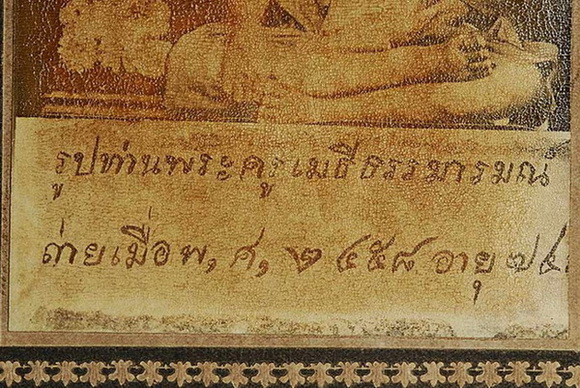 รูปท่านพระครูเมธีธรรมารมณ์
ถ่ายเมื่อ พ, ศ, ๒๔๕๘ อายุ ๗๔